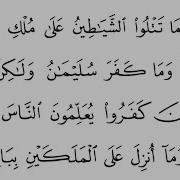 مَا تَتْلُوا۟ ٱلشَّيَـٰطِينُ عَلَىٰ مُلْكِ
وَمَا كَفَرَ سُلَيْمَـٰنُ وَلَـٰكِنَّ
كَفَرُوا۟ يُعَلِّمُونَ ٱلنَّاسَ
وَمَآ أُنزِلَ عَلَى ٱلْمَلَكَيْنِ بِبَا